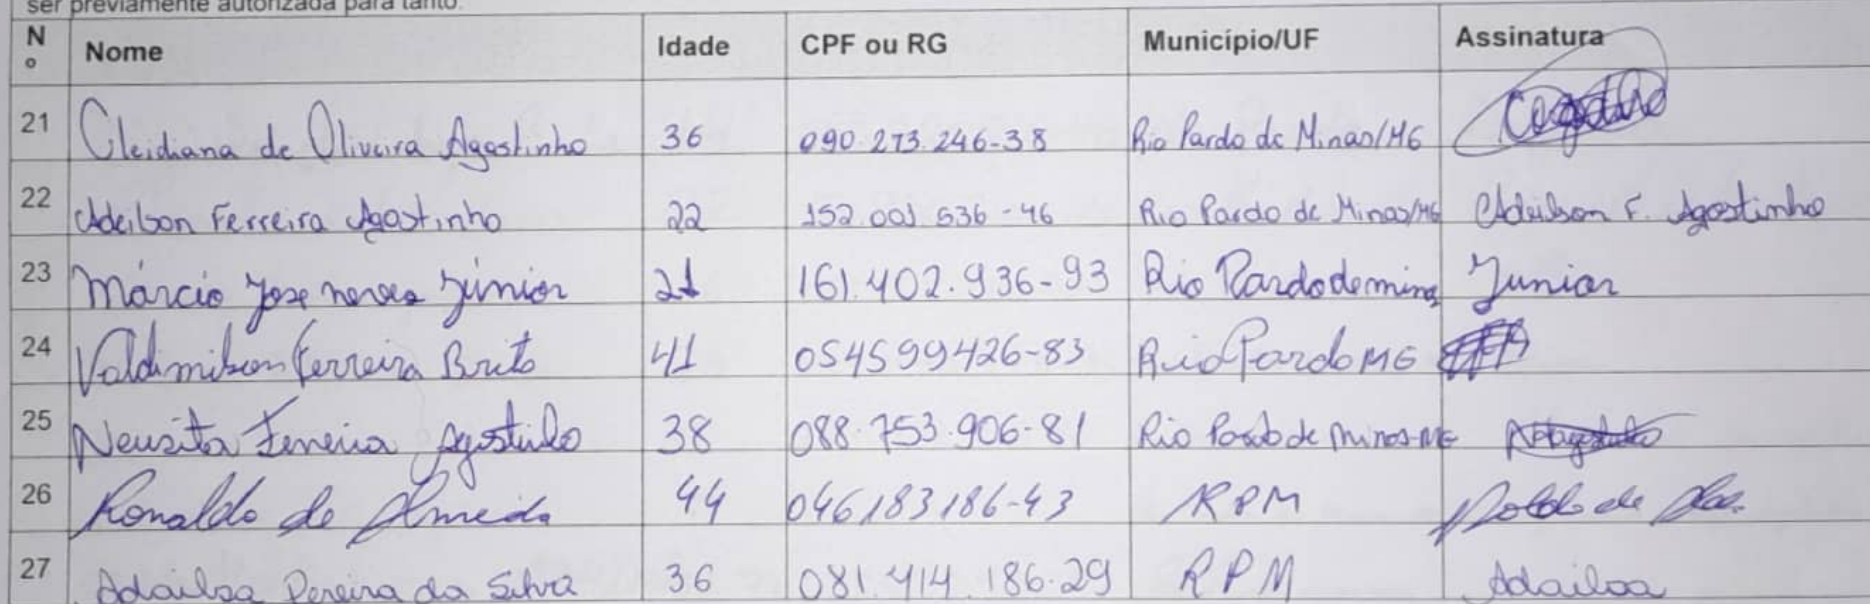 ser previamente autorizada para tanto.
Nº Nome Idade CPF ou RG Município/UF Assinatura
21 Cleidiana de Oliveira Agostinho 36 090.273.246-38 Rio Pardo de Minas/MG
22 Adeilson Ferreira Agostinho 22 152.001.636-46 Rio Pardo de Minas/MG Adeilson F. Agostinho
23 Márcio Jose neves Júnior 21 161.402.936-93 Rio Pardo de minas Junior
24 Valdimilson Ferreira Brito 41 054599426-83 Rio Pardo MG
25 Neusita Ferreira Agostinho 38 088.753.906-81 Rio Pardo de Minas-MG
26 Ronaldo de Almeida 44 046183186-43 RPM
27 Adailsa Pereira da Silva 36 081.414.186.29 RPM Adailsa